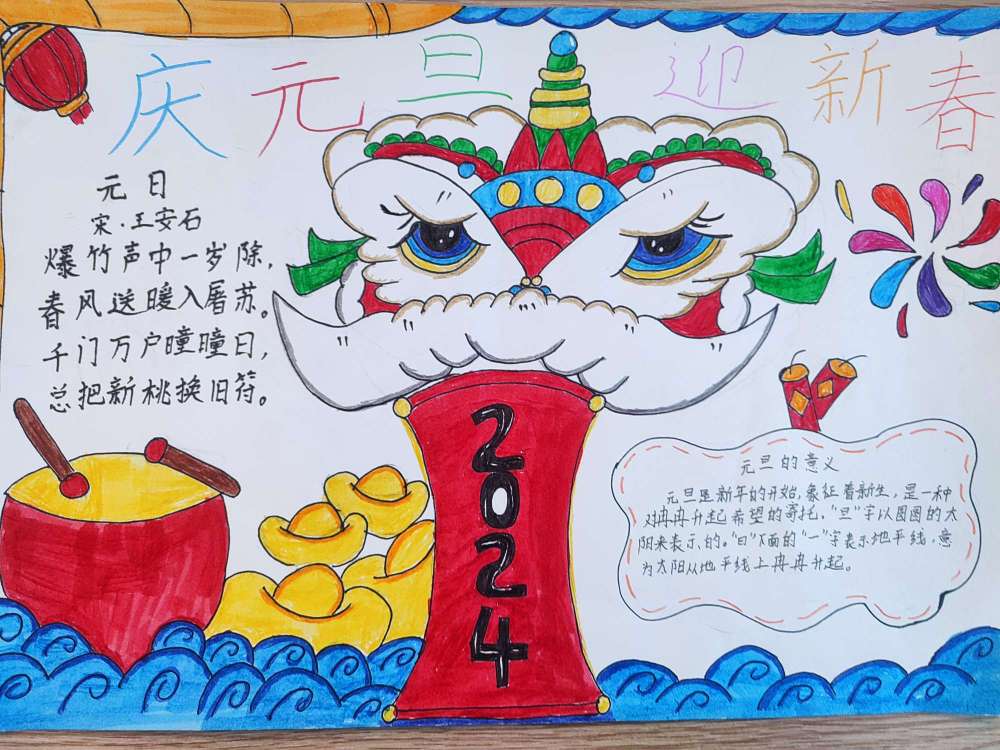 庆元旦 迎新春
元日
宋·王安石
爆竹声中一岁除，
春风送暖入屠苏。
千门万户曈曈日，
总把新桃换旧符。
2024
元旦的意义
元旦是新年的开始，象征着新生，是一种
对冉冉升起希望的寄托，“旦”字以圆圆的太
阳来表示的。“日”下面的“一”字表示地平线，意
为太阳从地平线上冉冉升起。